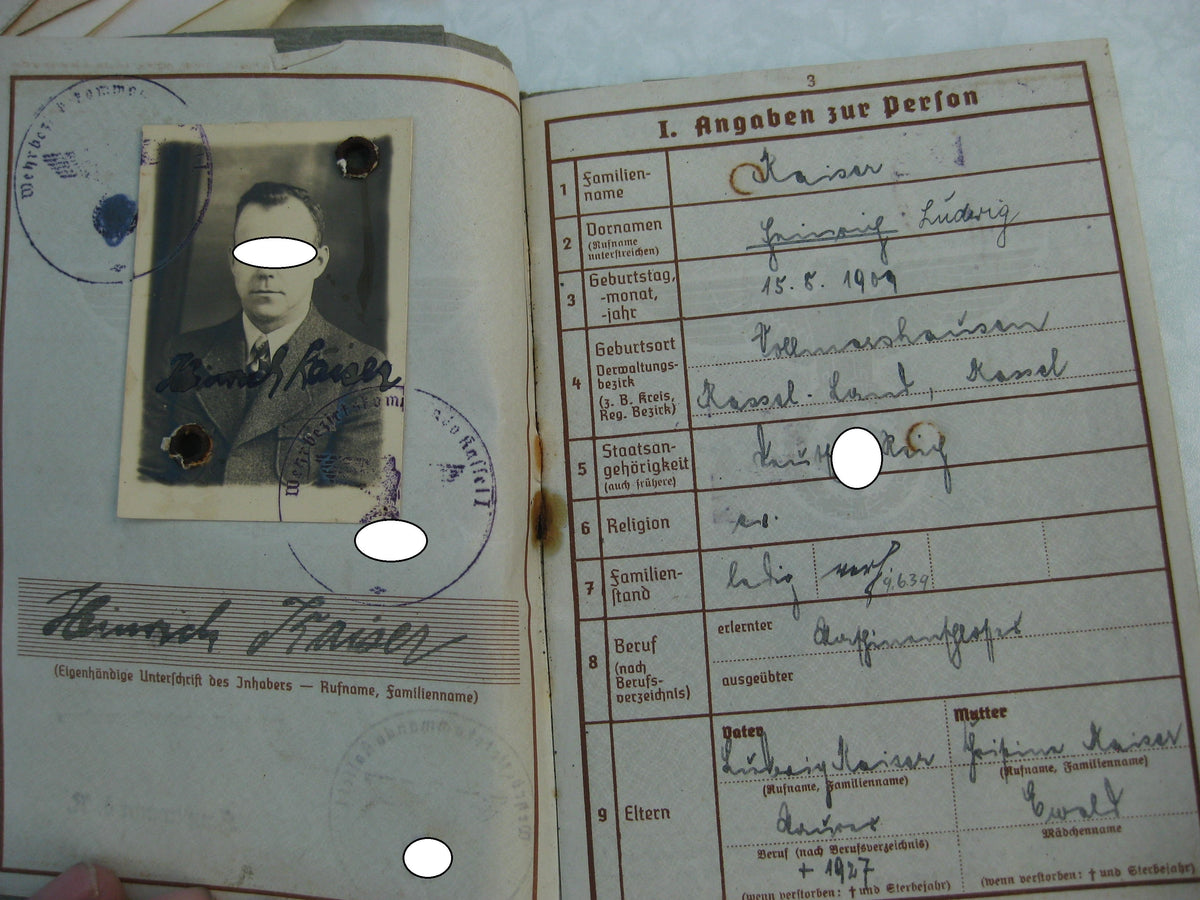 Wehrbez
Heinrich Kaiser
Wehrbezirkskommando Kassel I
Heinrich Kaiser
(Eigenhändige Unterſchrift des Inhabers — Rufname, Familienname)
3
I. Angaben zur Perſon
1 Familien-
name
Kaiser
2 Vornamen
(Rufname
unterſtreichen)
Heinrich Ludwig
3 Geburtstag,
-monat,
-jahr
15. 8. 1909
4 Geburtsort
Verwaltungs-
bezirk
(z. B. Kreis,
Reg. Bezirk)
Vollmarshausen
Kassel. Land, Kassel
5 Staatsan-
gehörigkeit
(auch frühere)
6 Religion
ev.
7 Familien-
ſtand
ledig verh.
9.6.39
8 Beruf
(nach
Berufs-
verzeichnis)
erlernter
Maschinenschlosser
ausgeübter
9 Eltern
Vater
Ludwig Kaiser
(Rufname, Familienname)
Maurer
Beruf (nach Berufsverzeichnis)
+ 1927
(wenn verſtorben: † und Sterbejahr)
Mutter
Kaiser
(Rufname, Familienname)
Ewald
Mädchenname
(wenn verſtorben: † und Sterbejahr)